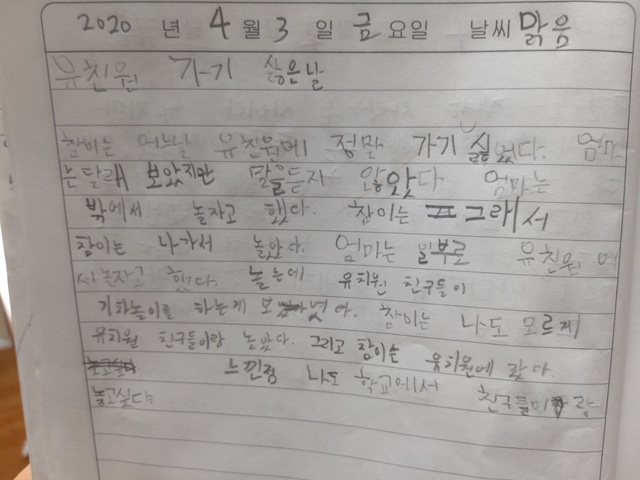 2020 년 4 월 3 일 금 요일 날씨 맑음
유친원 가기 싫은날
참이는 어느날 유친원에 정말 가기 싫었다. 엄마
는달래 보았지만 말을듣지 않았다. 엄마는
밖에서 놀자고 했다. 참이는 그래서
참이는 나가서 놀았다. 엄마는 일부로 유친원 에
서놀자고 했다. 놀는데 유치원 친구들이
기차놀이를 하는게 보였다. 참이는 나도 모르게
유치원 친구들이랑 논았다. 그리고 참이는 유치원에 갔다.
느낀점 나도 학교에서 친구들이랑
놀고싶다.